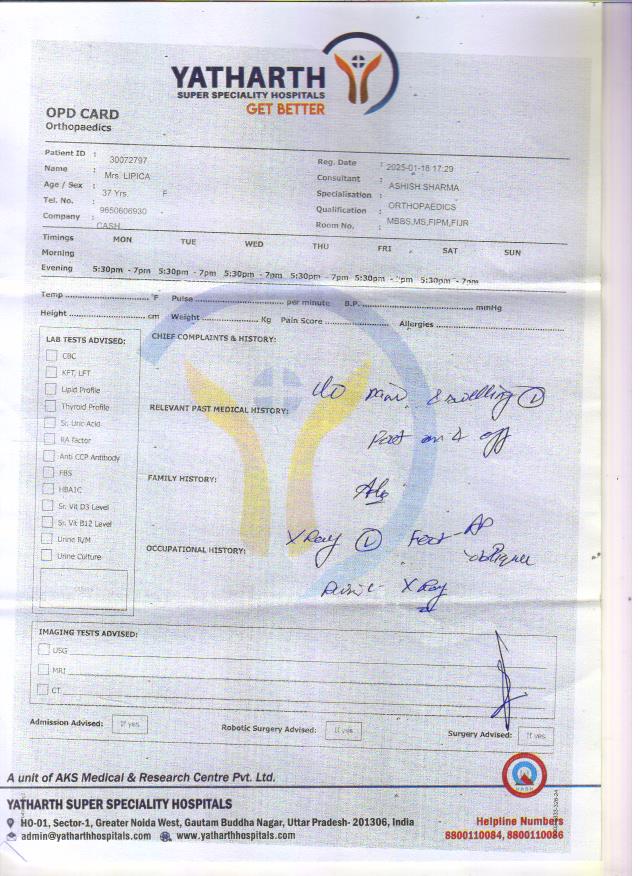 YATHARTH
SUPER SPECIALITY HOSPITALS
GET BETTER
OPD CARD
Orthopaedics
Patient ID : 30072797
Name : Mrs. LIPICA
Age / Sex : 37 Yrs. F
Tel. No. : 9650606930
Company : CASH
Reg. Date : 2025-01-18 17:29
Consultant : ASHISH SHARMA
Specialisation : ORTHOPAEDICS
Qualification : MBBS,MS,FIPM,FIJR
Room No. :
Timings MON TUE WED THU FRI SAT SUN
Morning
Evening 5:30pm - 7pm 5:30pm - 7pm 5:30pm - 7pm 5:30pm - 7pm 5:30pm - 7pm 5:30pm - 7pm
Temp °F Pulse per minute B.P. mmHg
Height cm Weight Kg Pain Score Allergies
LAB TESTS ADVISED:
CBC
KFT, LFT
Lipid Profile
Thyroid Profile
Sr. Uric Acid
RA factor
Anti CCP Antibody
FBS
HBA1C
Sr. Vit D3 Level
Sr. Vit B12 Level
Urine R/M
Urine Culture
CHIEF COMPLAINTS & HISTORY:
pain & swelling
RELEVANT PAST MEDICAL HISTORY:
on & off
FAMILY HISTORY:
Adv
OCCUPATIONAL HISTORY:
X Ray Foot - AP
oblique
X Ray
IMAGING TESTS ADVISED:
USG
MRI
CT
Admission Advised: If yes
Robotic Surgery Advised: If yes
Surgery Advised: If yes
A unit of AKS Medical & Research Centre Pvt. Ltd.
YATHARTH SUPER SPECIALITY HOSPITALS
HO-01, Sector-1, Greater Noida West, Gautam Buddha Nagar, Uttar Pradesh- 201306, India
admin@yatharthhospitals.com www.yatharthhospitals.com
Helpline Numbers
8800110084, 8800110086